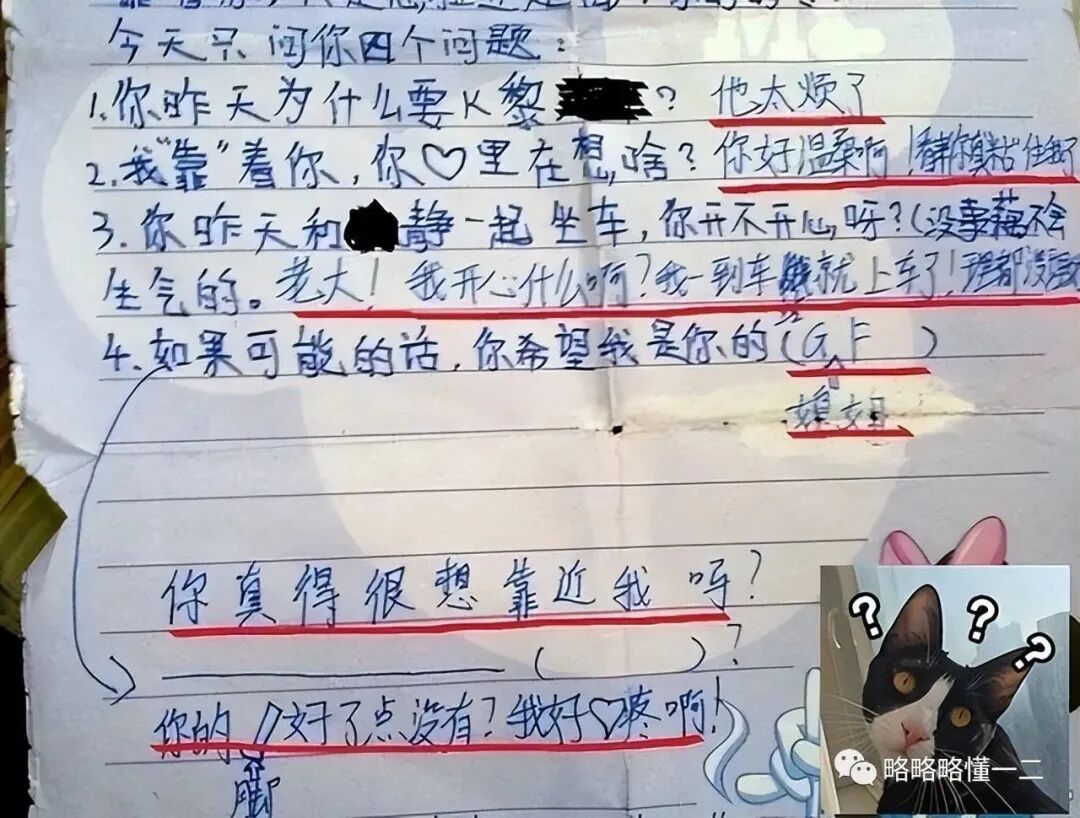 今天只问你四个问题:
1.你昨天为什么要K黎 ? 他太烦了
2.我"靠"着你,你♡里在想啥?你好温柔啊!
3.你昨天和 静一起坐车,你开不开心呀?(没事藕不会
生气的。老大!我开心什么啊?我一到车 就上车了!理都没
4.如果可能的话,你希望我是你的(GF )
媳妇
你真得很想靠近我吗?
( )?
你的 好了点没有?我好♡疼啊!
脚
? ? ?
略略略懂一二